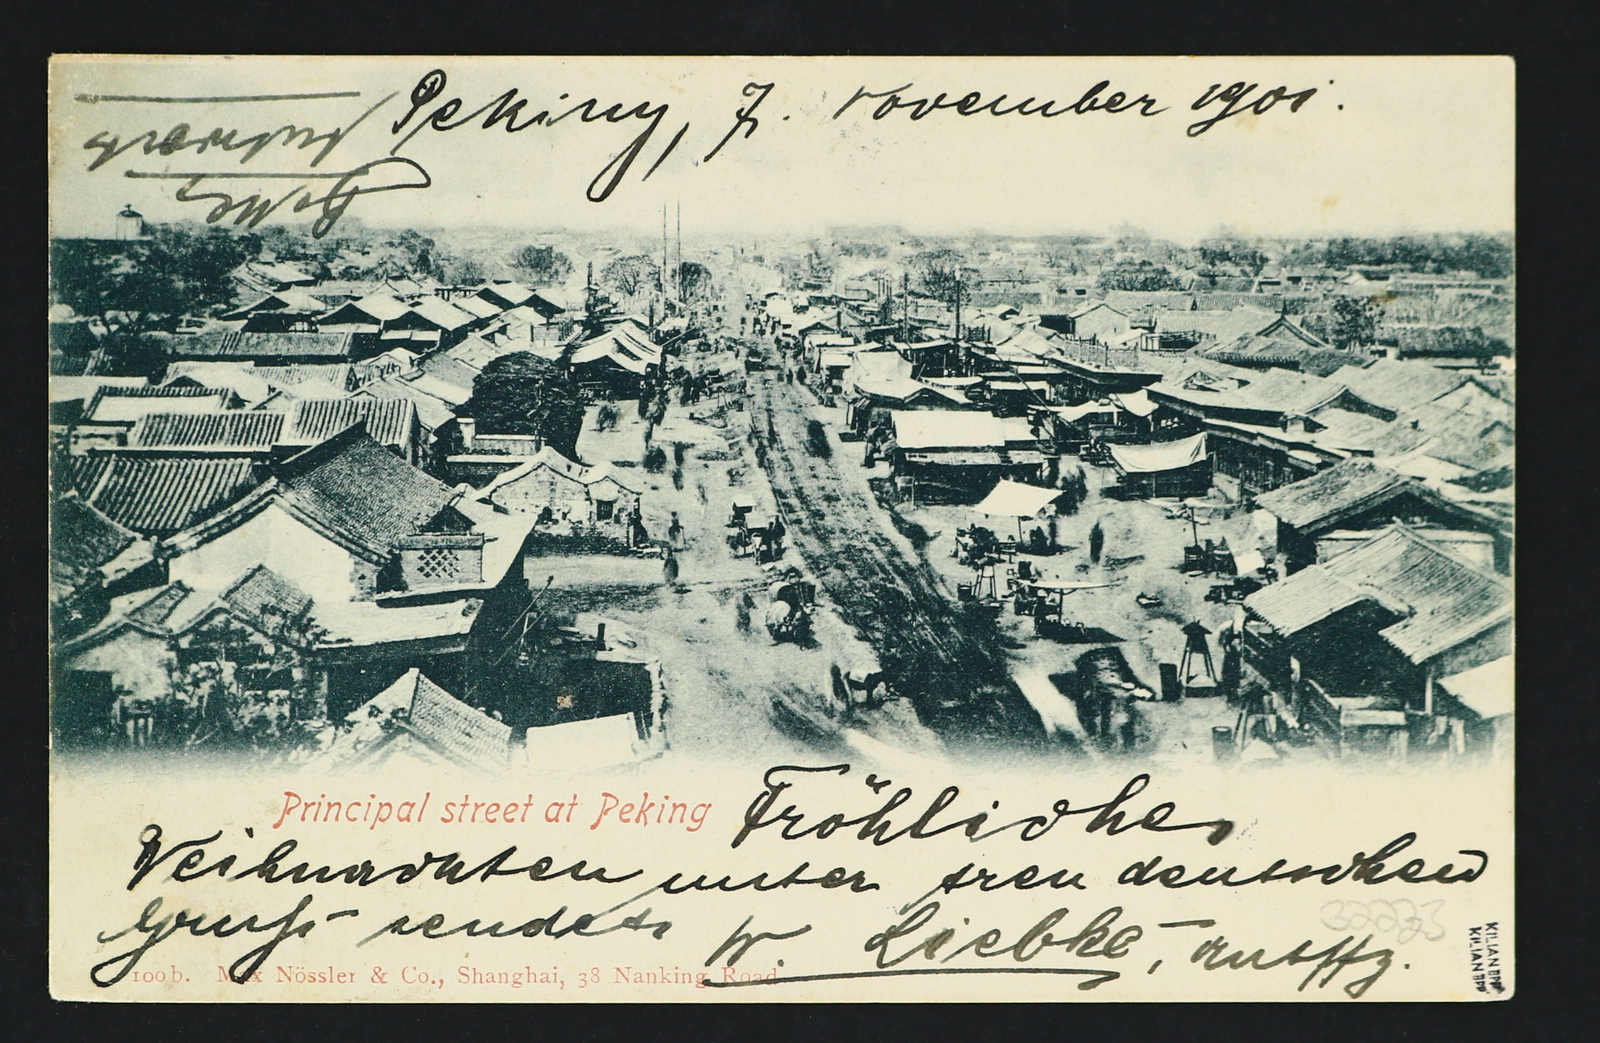 Peking, 7. November 1901.
Principal street at Peking
Fröhliche
Weihnachten unter treu deutschen
Gruß sendet
W. Liebke,
100b. Max Nössler & Co., Shanghai, 38 Nanking Road
32223
KILIAN BPP
KILIAN BPP